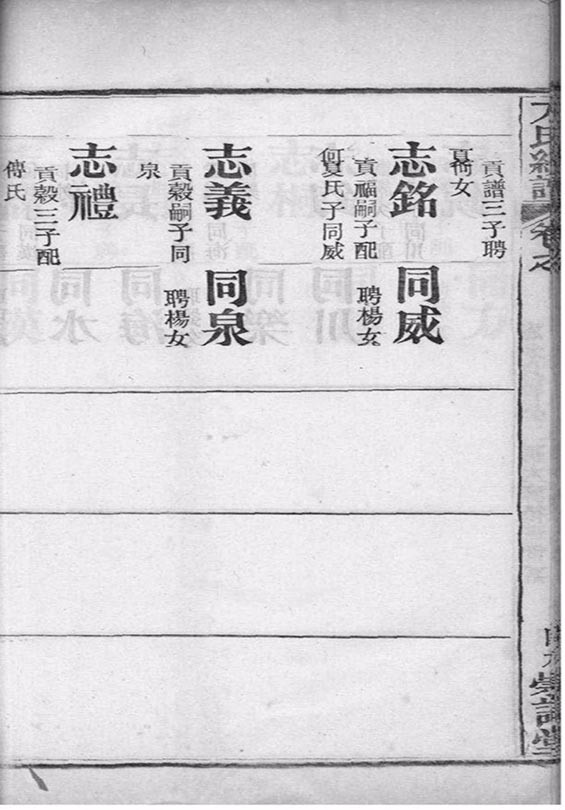 貢譜三子聘
女
志銘
貢福嗣子配
何夏氏子同威
同威
聘楊女
志義
貢穀嗣子同
泉
同泉
聘楊女
志禮
貢穀三子配
傅氏